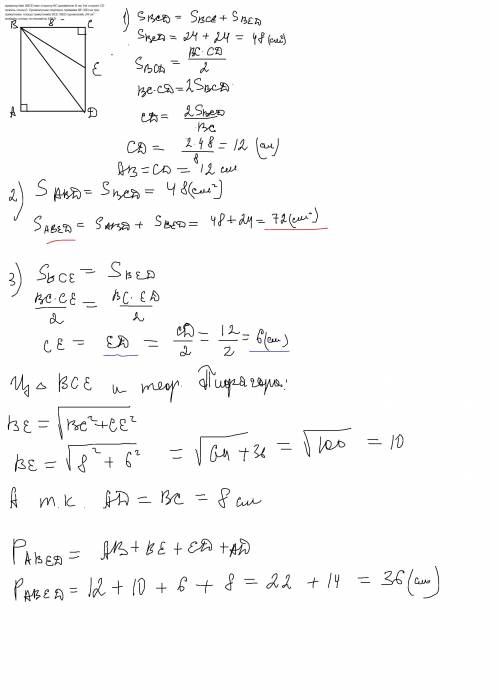 B 8 C
E
A D
1) S_BCD = S_BCE + S_BED
S_BCD = 24 + 24 = 48 (см²)
S_BCD = BC·CD / 2
BC·CD = 2S_BCD
CD = 2S_BCD / BC
CD = 2·48 / 8 = 12 (см)
AB = CD = 12 см
2) S_ABD = S_BCD = 48 (см²)
S_ABED = S_ABD + S_BED = 48 + 24 = 72 (см²)
3) S_BCE = S_BED
BC·CE / 2 = BC·ED / 2
CE = ED = CD / 2 = 12 / 2 = 6 (см)
Из △ BCE и теор. Пифагора:
BE = √(BC² + CE²)
BE = √(8² + 6²) = √(64 + 36) = √100 = 10
А т.к. AD = BC = 8 см
P_ABED = AB + BE + ED + AD
P_ABED = 12 + 10 + 6 + 8 = 22 + 14 = 36 (см)